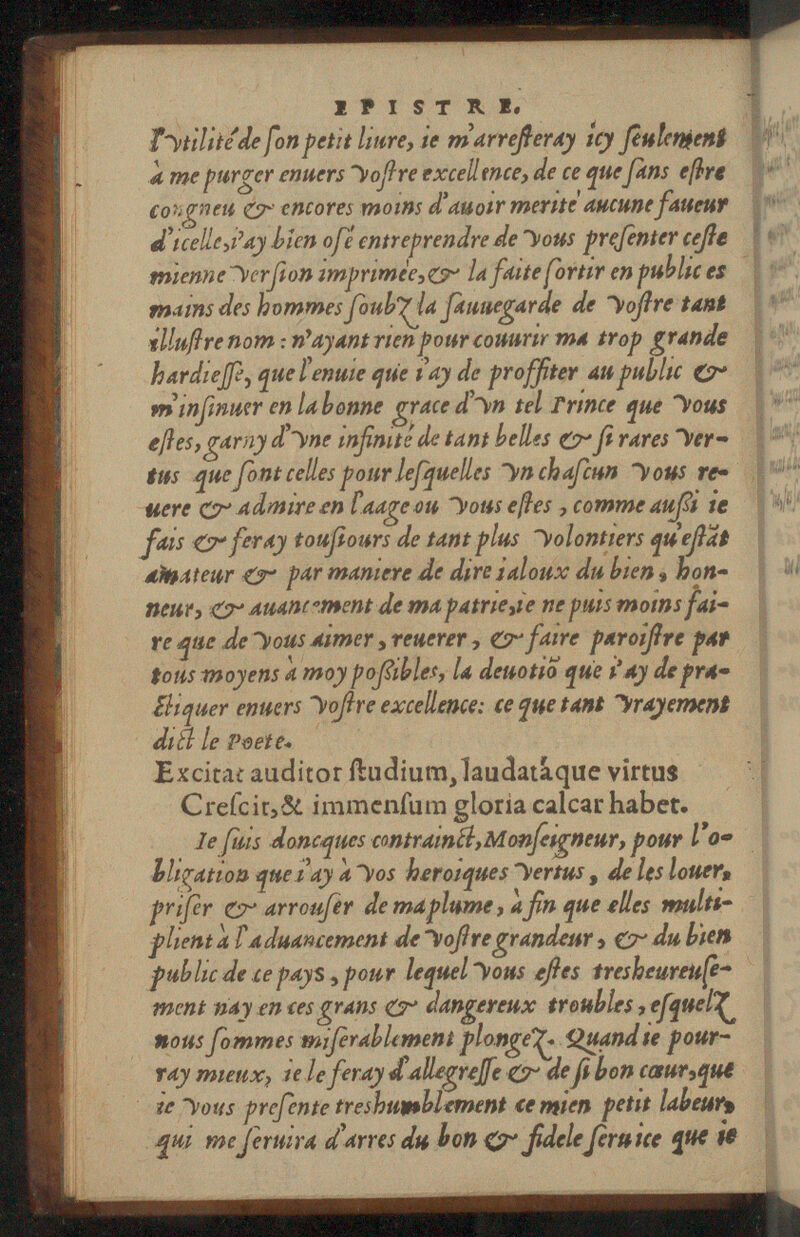 EPISTRE.
l'vtilité de ſon petit liure, ie m'arreſteray icy ſeulement
à me purger enuers voſtre excellence, de ce que ſans eſtre
congneu & encores moins d'auoir merité aucune faueur
d'icelle, i'ay bien oſé entreprendre de vous preſenter ceſte
mienne verſion imprimée, & la faite ſortir en public es
mains des hommes ſoubz la ſauuegarde de voſtre tant
illuſtre nom : n'ayant rien pour couurir ma trop grande
hardieſſe, que l'enuie que i'ay de proffiter au public &
m'inſinuer en la bonne grace d'vn tel Prince que vous
eſtes, garny d'vne infinité de tant belles & ſi rares ver-
tus que ſont celles pour leſquelles vn chaſcun vous re-
uere & admire en l'aage ou vous eſtes , comme auſsi ie
fais & feray touſiours de tant plus volontiers qu'eſtāt
amateur & par maniere de dire ialoux du bien, hon-
neur, & auancement de ma patrie, ie ne puis moins fai-
re que de vous aimer , reuerer , & faire paroiſtre par
tous moyens à moy poſsibles, la deuotiō que i'ay de pra-
ctiquer enuers voſtre excellence: ce que tant vrayement
dict le Poete.
Excitat auditor ſtudium, laudatàque virtus
Creſcit, & immenſum gloria calcar habet.
Ie ſuis doncques contrainct, Monſeigneur, pour l'o-
bligation que i'ay à vos heroiques vertus , de les louer,
priſer & arrouſer de ma plume, à fin que elles multi-
plient à l'aduancement de voſtre grandeur , & du bien
public de ce pays , pour lequel vous eſtes tresheureuſe-
ment nay en ces grans & dangereux troubles , eſquelz
nous ſommes miſerablement plongez. Quand ie pour-
ray mieux, ie le feray d'allegreſſe & de ſi bon cœur, que
ie vous preſente treshumblement ce mien petit labeur,
qui me ſeruira d'arres du bon & fidele ſeruice que ie